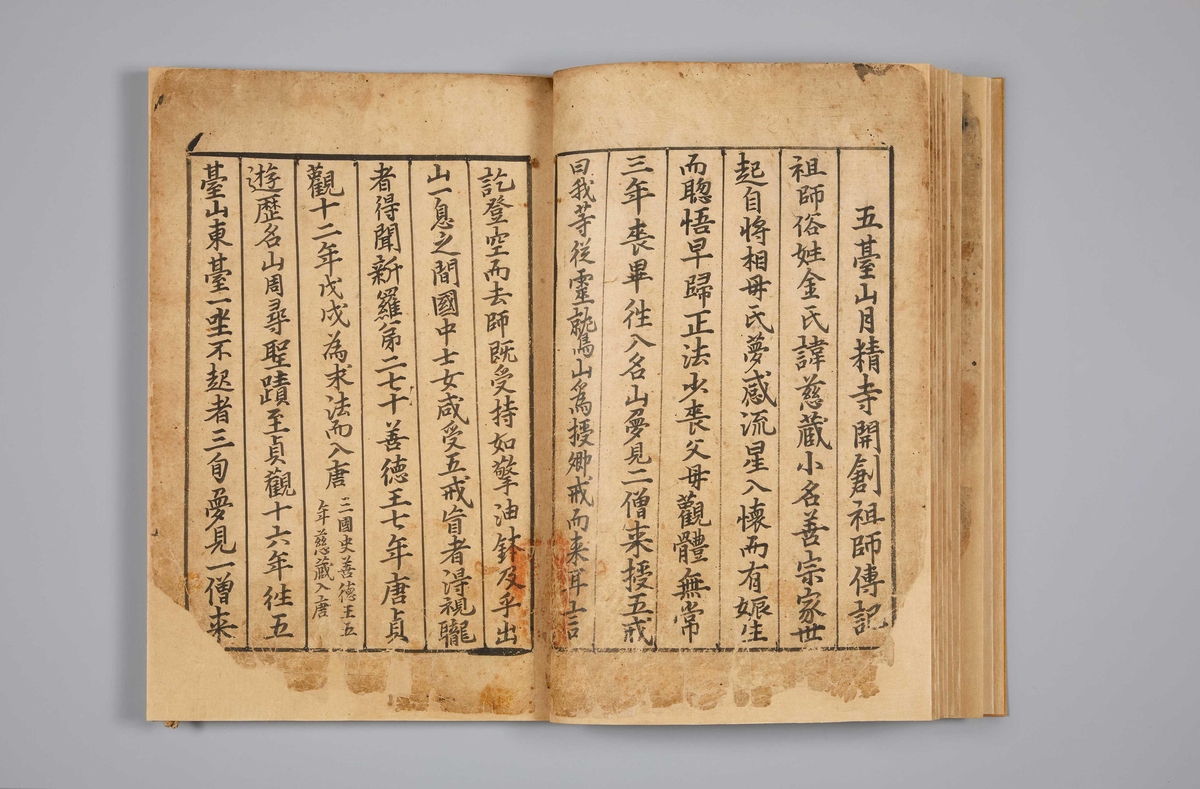 五䑓山月精寺開創祖師傳記
祖師俗姓金氏諱慈蔵小名善宗家世
起自將相母氏夢感流星入懷而有娠生
而聦悟早歸正法少喪父母觀體無常
三年喪畢徃入名山夢見二僧来授五戒
曰我等從靈鷲山爲授卿戒而来耳言
訖登空而去師既受持如擎油鉢及乎出
山一息之間國中士女咸受五戒盲者得視聾
者得聞新羅第二七十善德王七年唐貞
觀十二年戊戌為求法而入唐
三國史善德王五
年慈藏入唐
遊歷名山周尋聖蹟至貞觀十六年徃五
䑓山東䑓一坐不起者三旬夢見一僧来